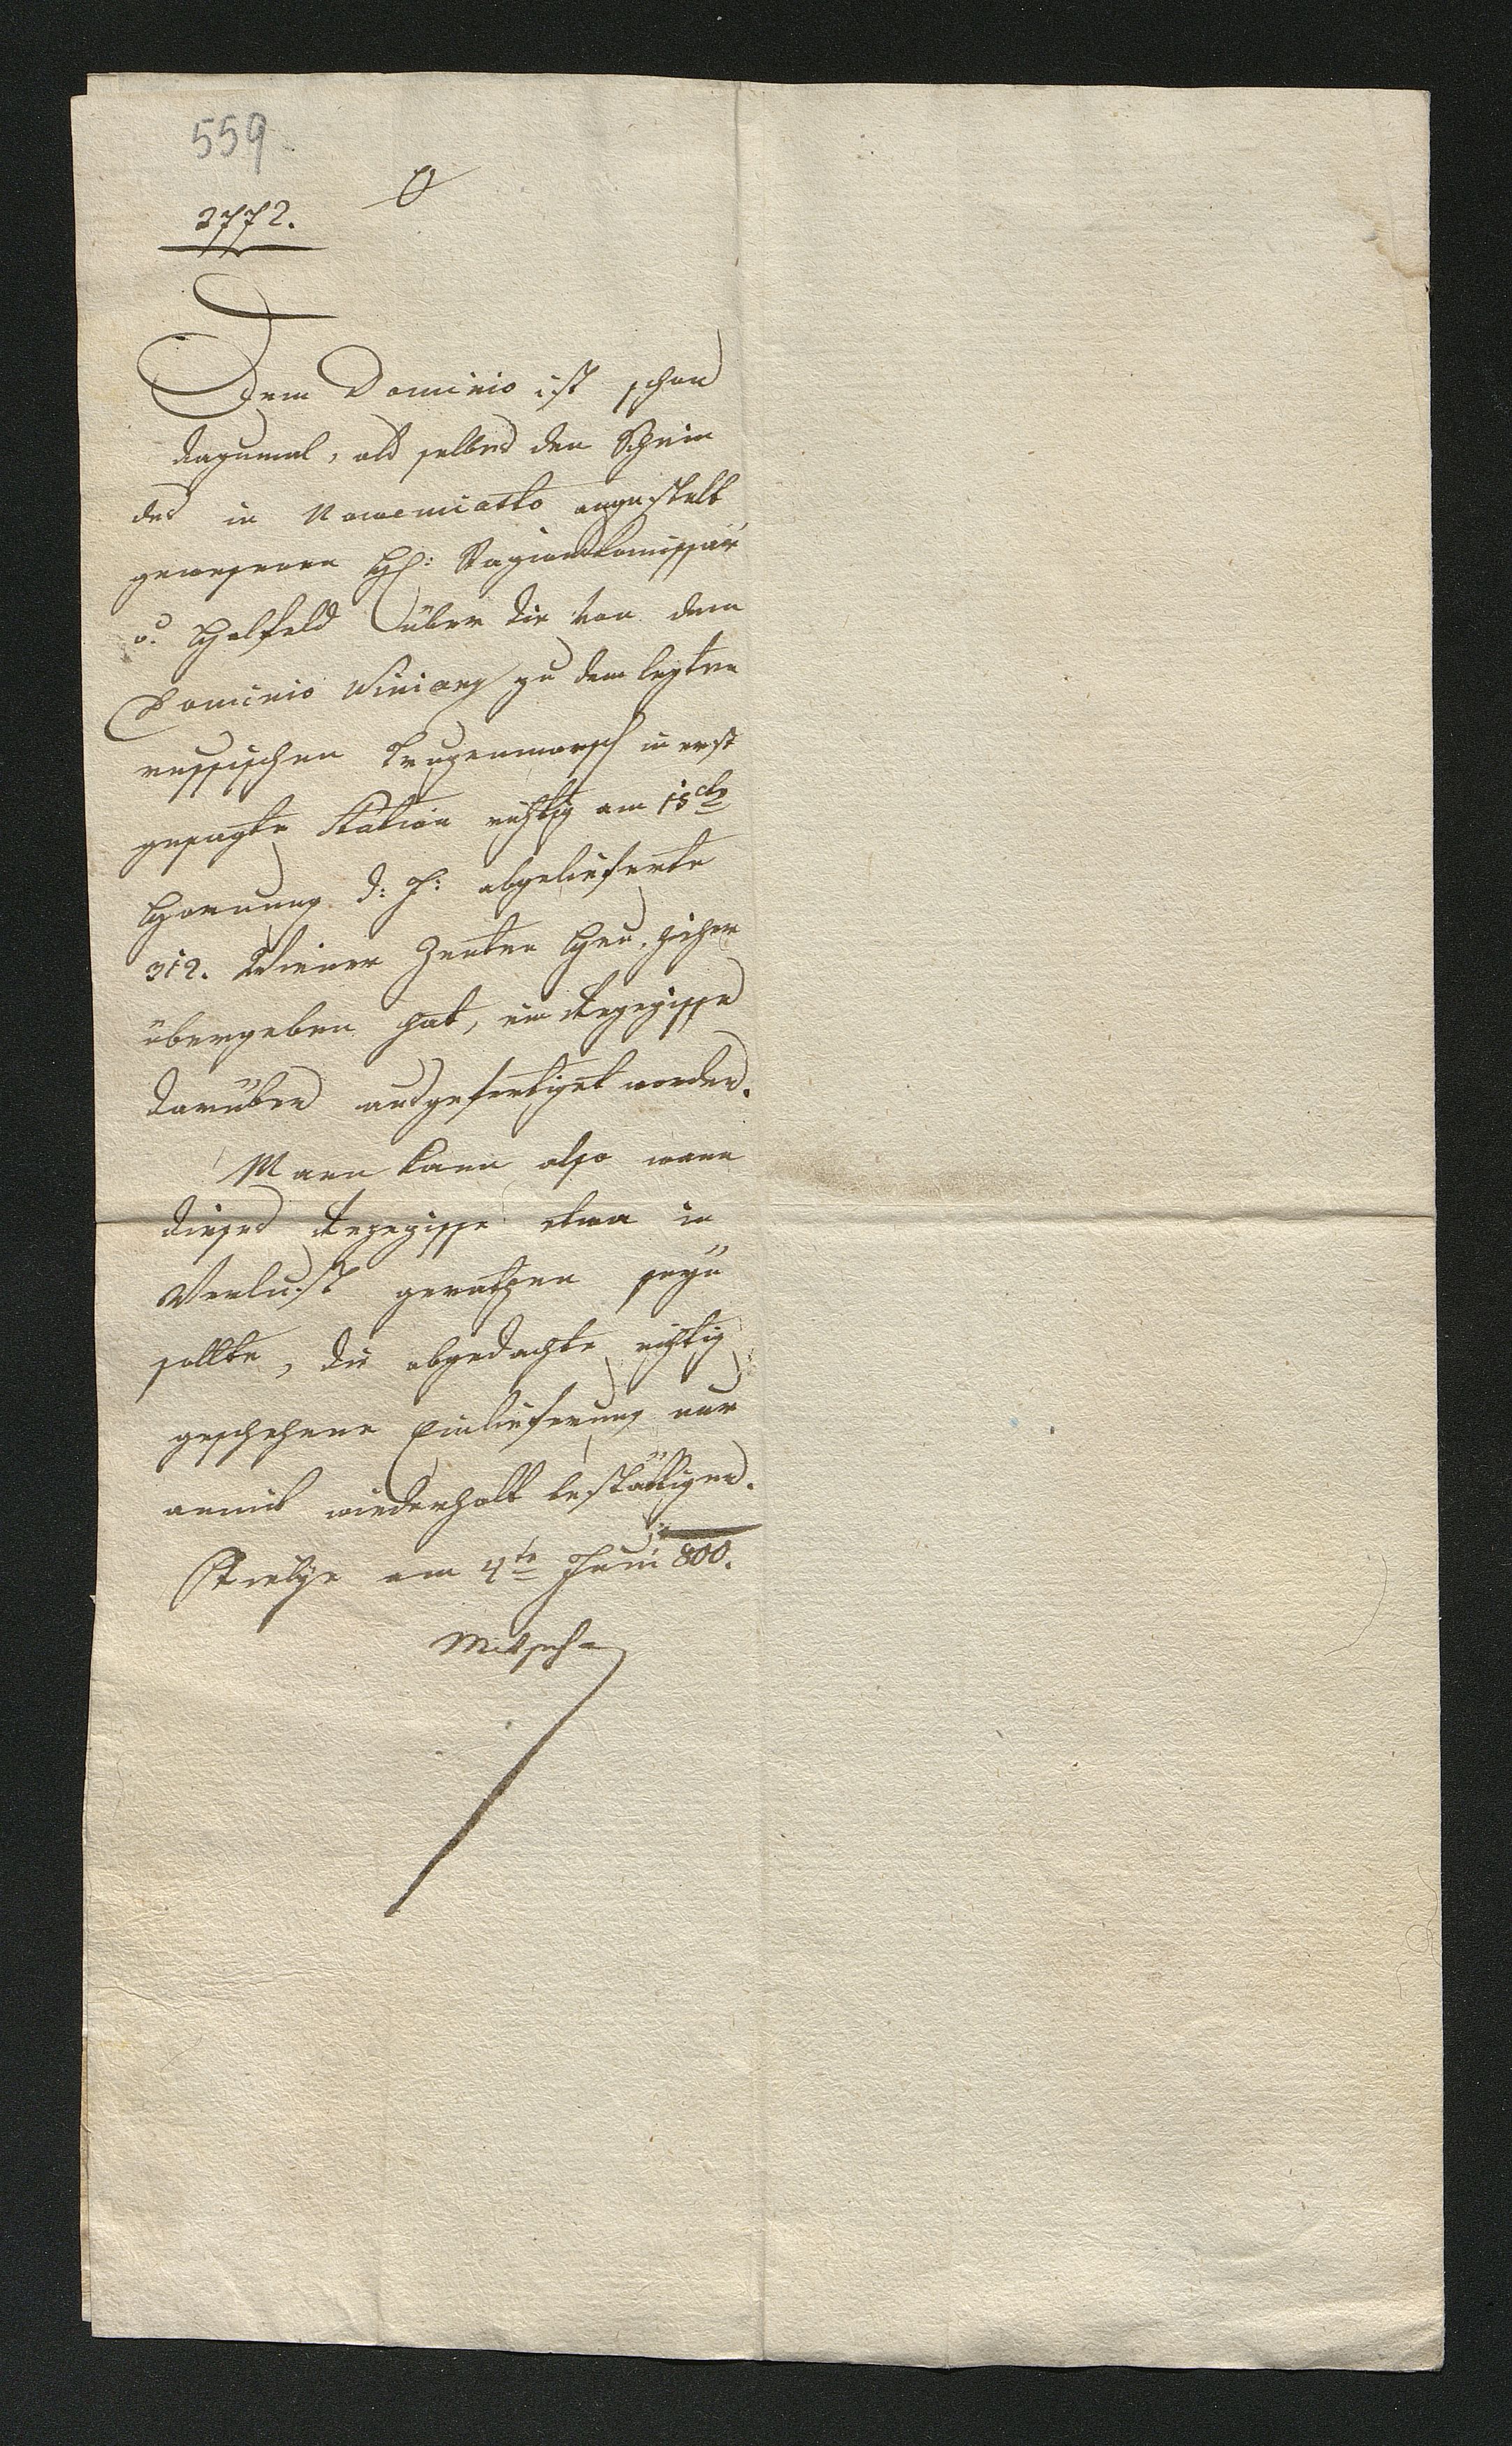 559
2772.
Dem Dominio ist schon
dazumal, als selbes den Schein
des in Nowemiasto angestelt
gewesenen H: Stazionskomissär
v. Helfeld über die von dem
Dominio Winiary zu dem lezten
russischen Trupenmarsch in erst
gesagte Station richtig am 15
Hornung d: J: abgelieferte
312. Wiener Zenten Heu, hieher
übergeben hat, ein Rezepisse
darüber ausgefertiget worden.
Mann kann also wann
dieses Rezepisse etwa in
Verlust gerathen seyn
sollte, die abgedachte richtig
geschehene Einlieferung nur
anmit wiederholt bestättigen.
am 4te Juni 800.